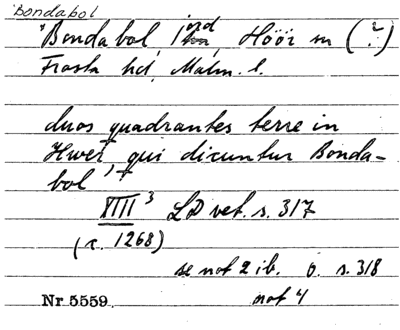 Bondabol
Bondabol, jord, Höör sn (?)
Frosta hd, Malm. l.
duos quadrantes terre in
Hwet, qui dicuntur Bonda-
bol
XIIII 3 LD vet. s. 317
(c. 1268)
se not 2 ib. o. s. 318
not 4
Nr 5559